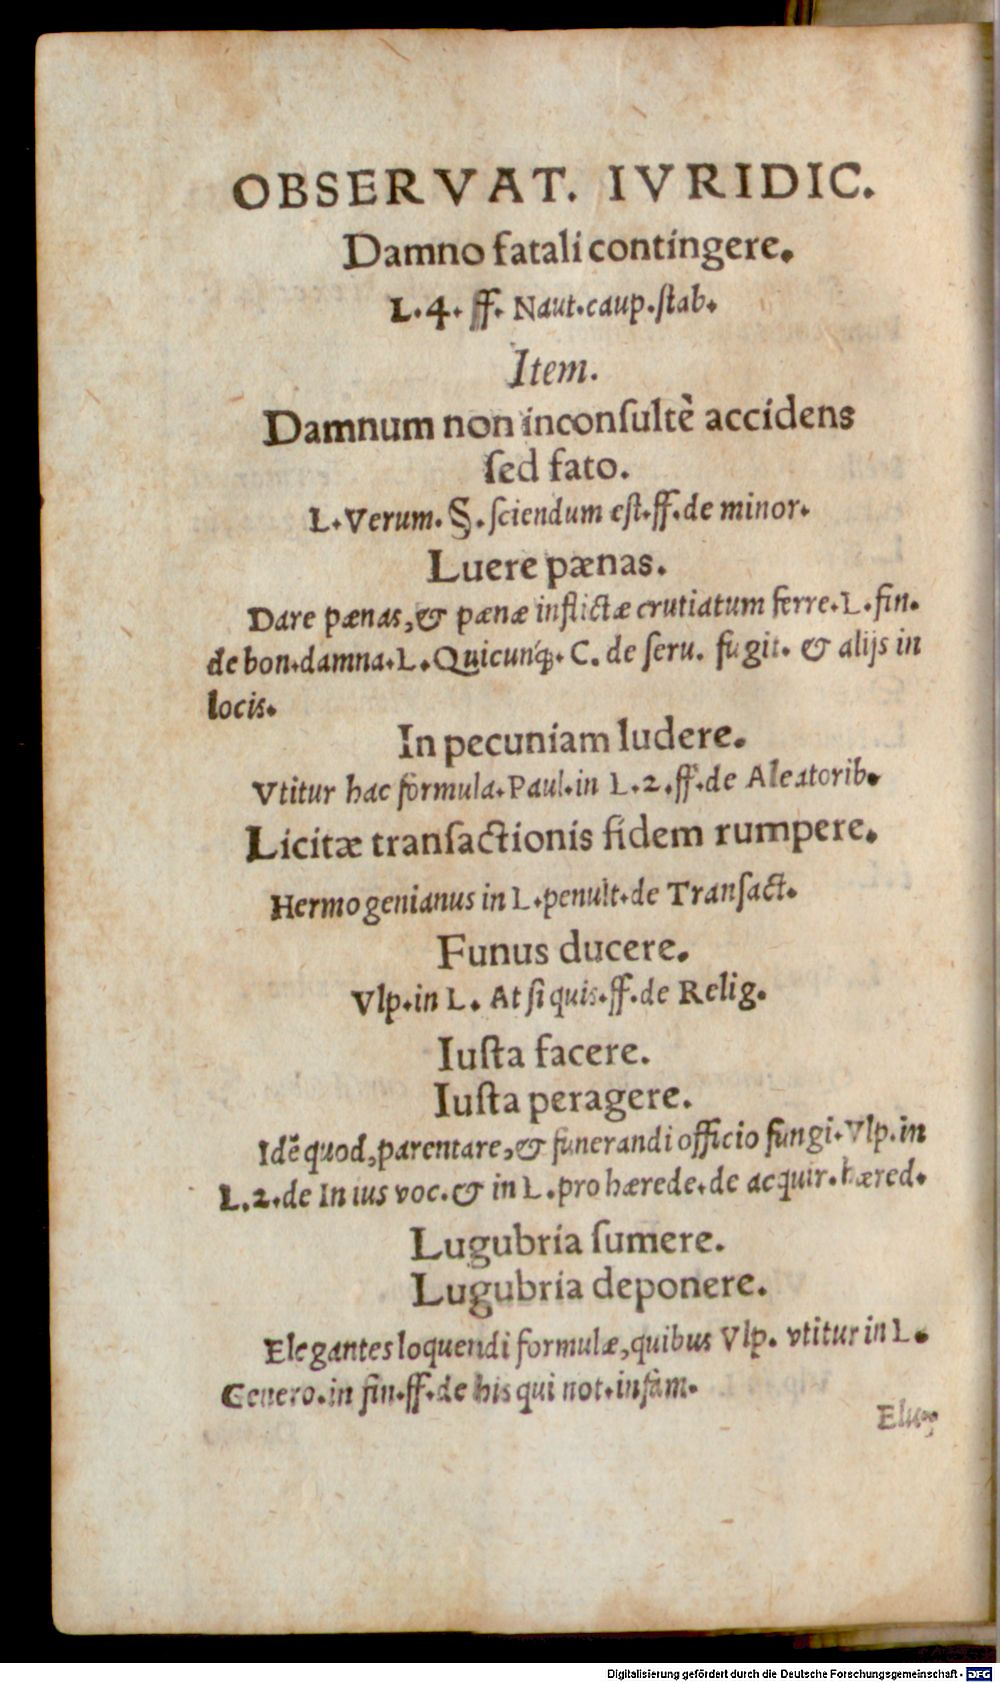 OBSERVAT. IVRIDIC.
Damno fatali contingere.
L. 4. ff. Naut. caup. ſtab.
Item.
Damnum non inconſultè accidens
ſed fato.
L. Verum. §. ſciendum eſt. ff. de minor.
Luere pænas.
Dare pænas, & pænæ inflictæ crutiatum ferre. L. fin.
de bon. damna. L. Quicunq́;. C. de ſeru. fugit. & alijs in
locis.
In pecuniam ludere.
Vtitur hac formula. Paul. in L. 2. ff. de Aleatorib.
Licitæ tranſactionis fidem rumpere.
Hermogenianus in L. penult. de Tranſact.
Funus ducere.
Vlp. in L. At ſi quis. ff. de Relig.
Iuſta facere.
Iuſta peragere.
Idē quod, parentare, & funerandi officio fungi. Vlp. in
L. 2. de In ius voc. & in L. pro hærede. de acquir. hæred.
Lugubria ſumere.
Lugubria deponere.
Elegantes loquendi formulæ, quibus Vlp. vtitur in L.
Genero. in fin. ff. de his qui not. infam.
Digitalisierung gefördert durch die Deutsche Forschungsgemeinschaft - DFG